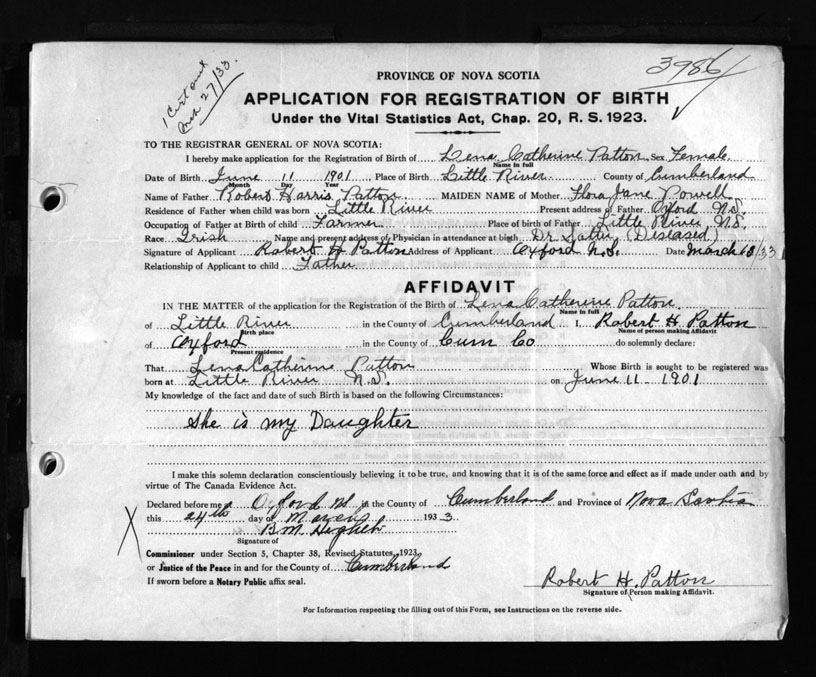 1 Cert and
Mch 27/33.
3986
PROVINCE OF NOVA SCOTIA
APPLICATION FOR REGISTRATION OF BIRTH
Under the Vital Statistics Act, Chap. 20, R. S. 1923.
TO THE REGISTRAR GENERAL OF NOVA SCOTIA:
I hereby make application for the Registration of Birth of Lena Catherine Patton Sex Female
Name in full
Date of Birth June 11 1901 Place of Birth Little River County of Cumberland
Month Day Year
Name of Father Robert Harris Patton MAIDEN NAME of Mother Flora Jane Powell
Residence of Father when child was born Little River Present address of Father Oxford N.S.
Occupation of Father at Birth of child Farmer Place of birth of Father Little River N.S.
Race Irish Name and present address of Physician in attendance at birth Dr (Deseased)
Signature of Applicant Robert H Patton Address of Applicant Oxford N.S. Date March 18/33
Relationship of Applicant to child Father
AFFIDAVIT
IN THE MATTER of the application for the Registration of the Birth of Lena Catherine Patton
Name in full
of Little River in the County of Cumberland I, Robert H. Patton
Birth place Name of person making Affidavit
of Oxford in the County of Cum Co do solemnly declare:
Present residence
That Lena Catherine Patton Whose Birth is sought to be registered was
born at Little River N.S. on June 11 1901
My knowledge of the fact and date of such Birth is based on the following Circumstances:
She is my Daughter
I make this solemn declaration conscientiously believing it to be true, and knowing that it is of the same force and effect as if made under oath and by
virtue of The Canada Evidence Act.
Declared before me at Oxford NS in the County of Cumberland and Province of Nova Scotia
this 24th day of March 1933
B.M.
Signature of
X
Commissioner under Section 5, Chapter 38, Revised Statutes, 1923
or Justice of the Peace in and for the County of Cumberland
If sworn before a Notary Public affix seal.
Robert H. Patton
Signature of Person making Affidavit.
For Information respecting the filling out of this Form, see Instructions on the reverse side.